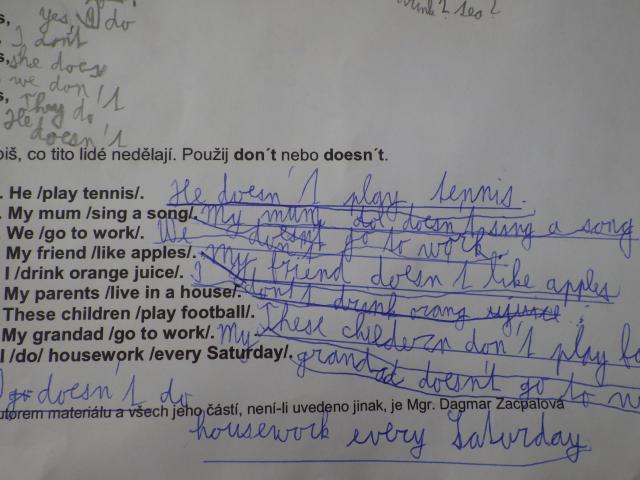 Yes, I do
I don't
she does
we don't
They do
He doesn't
piš, co tito lidé nedělají. Použij don´t nebo doesn´t.
He /play tennis/. He doesn't play tennis.
My mum /sing a song/. My mum doesn't sing a song
We /go to work/. We don't go to work.
My friend /like apples/. my friend doesn't like apples
I /drink orange juice/. I don't drink orang
My parents /live in a house/.
These children /play football/. These childern don't play
My grandad /go to work/. My grandad doesn't go to
I /do/ housework /every Saturday/.
I doesn't do
utorem materiálu a všech jeho částí, není-li uvedeno jinak, je Mgr. Dagmar Zacpalová
housework every Saturday